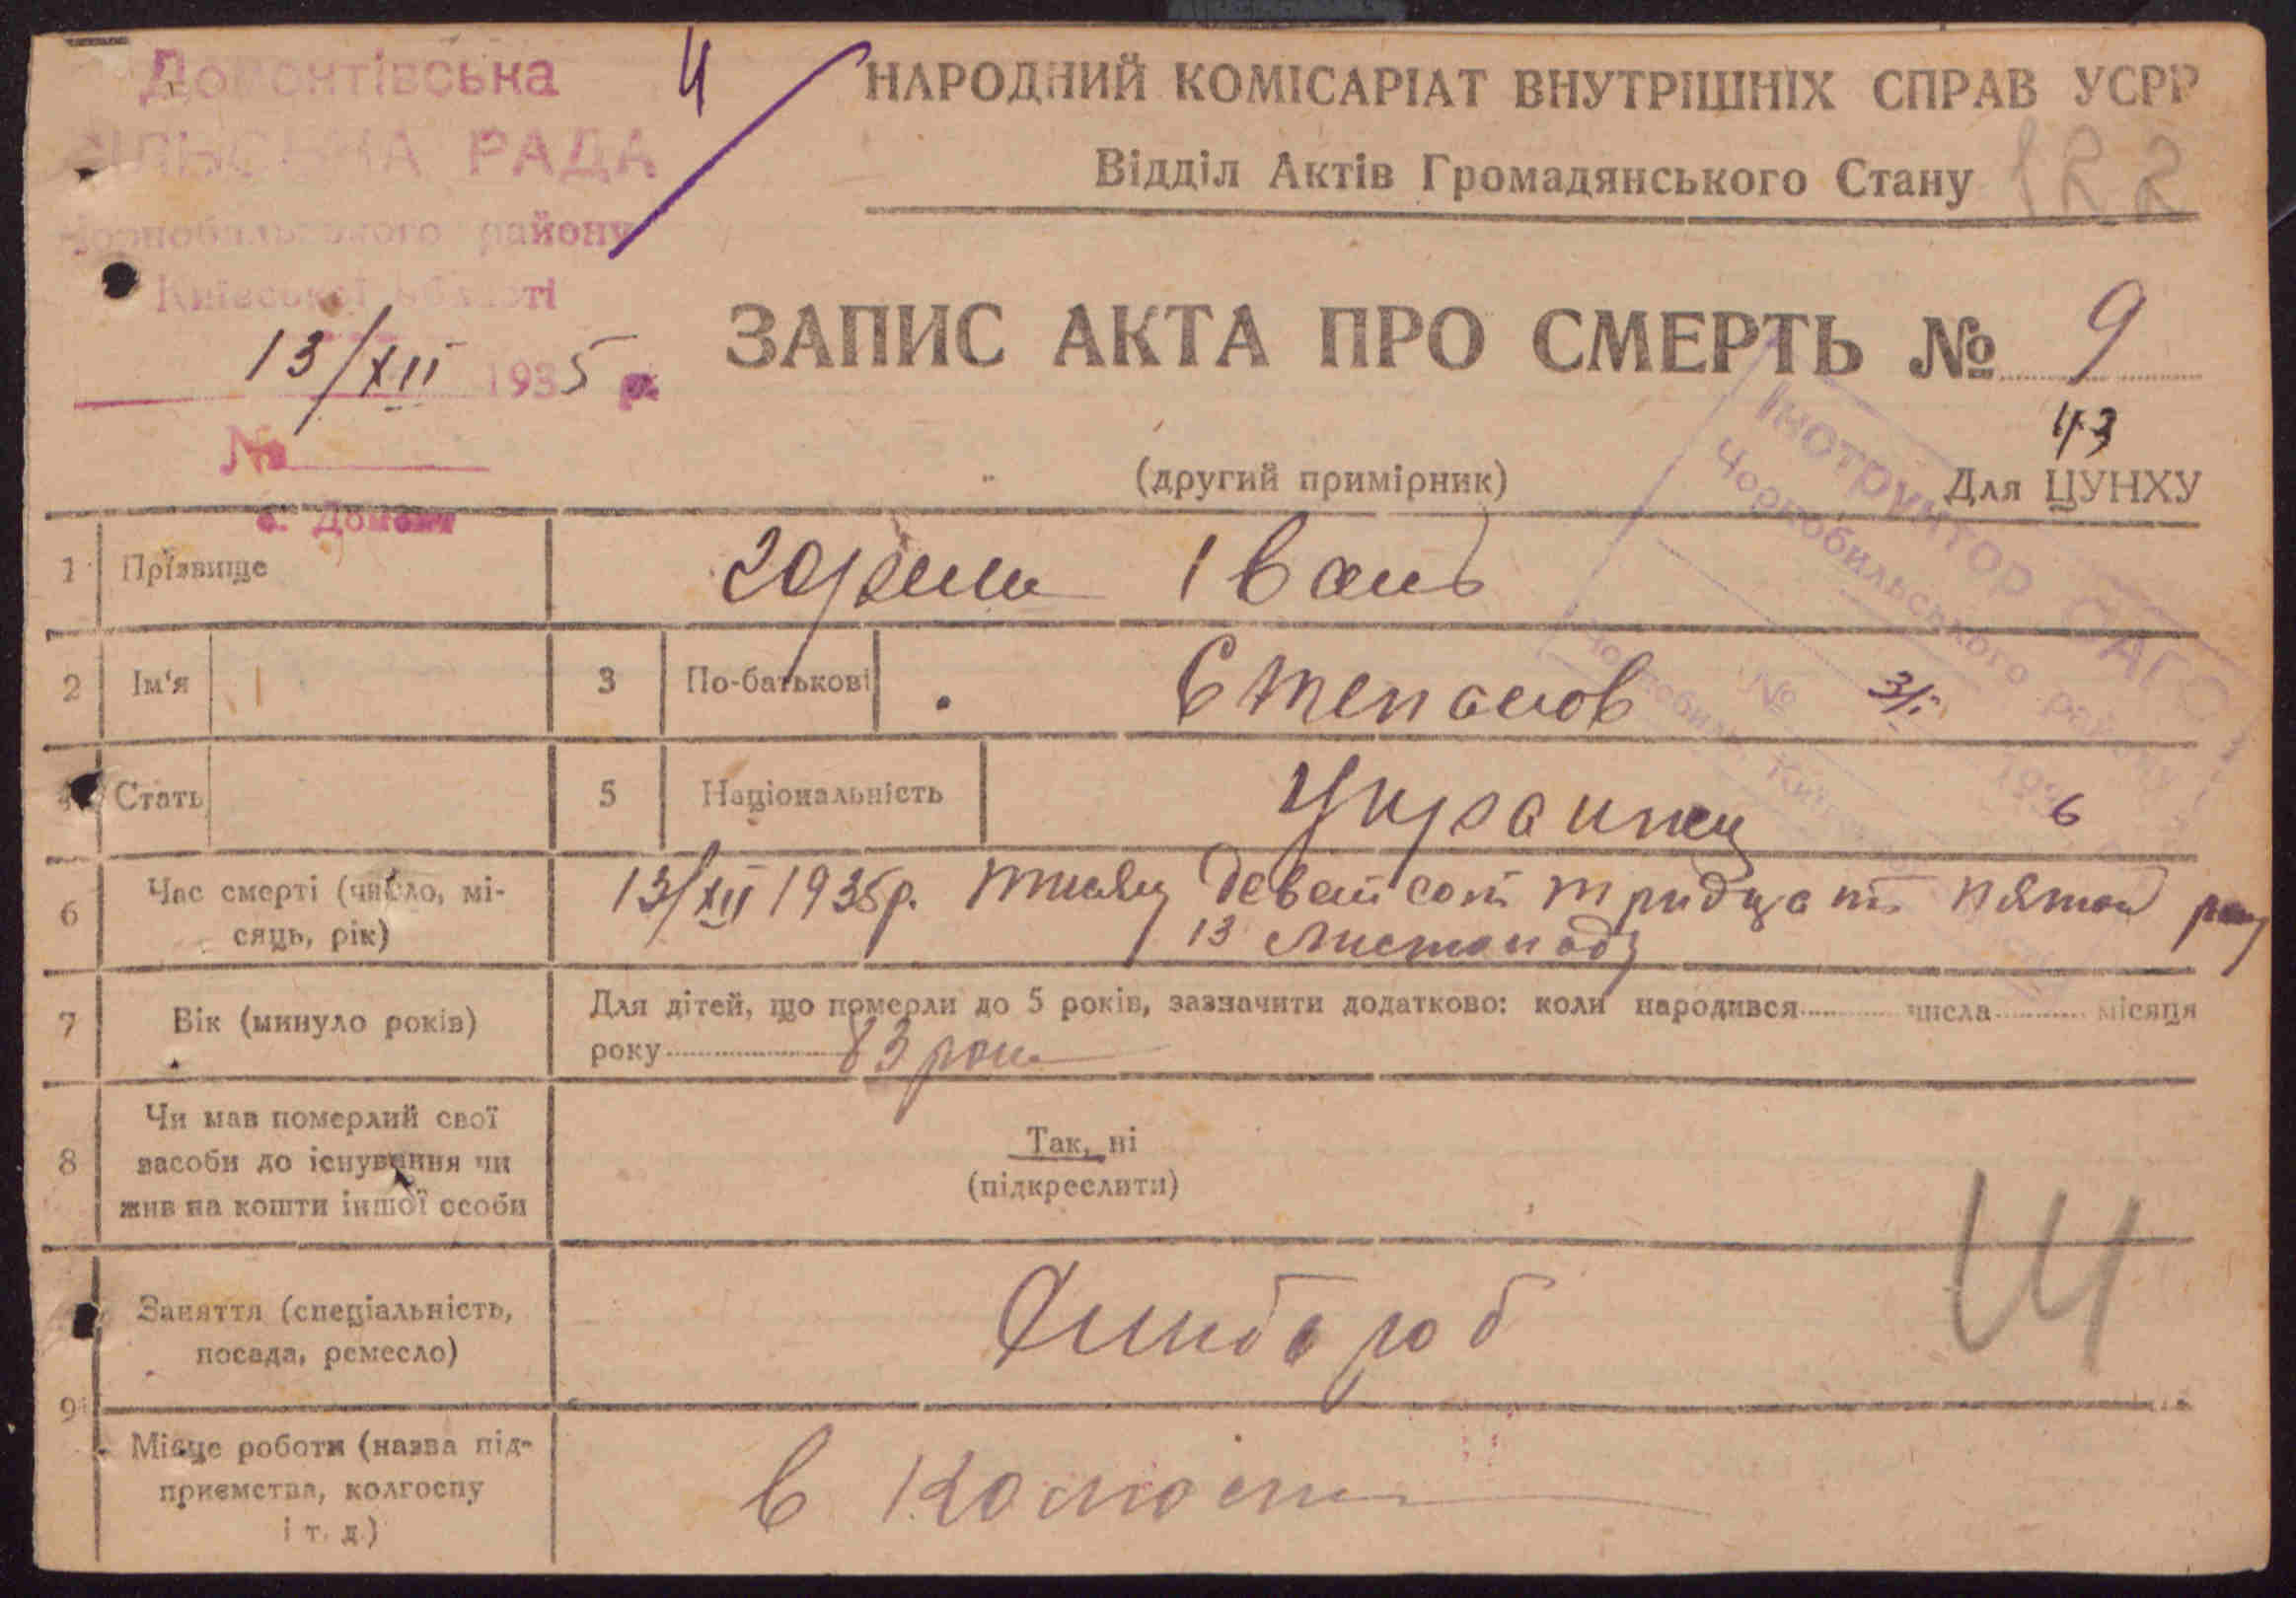 Домонтівська
СІЛЬСЬКА РАДА
Чорнобильського району
Київської області
13/XII 1935 р.
№
с. Домонт
4
НАРОДНИЙ КОМІСАРІАТ ВНУТРІШНІХ СПРАВ УСРР
Відділ Актів Громадянського Стану
122
ЗАПИС АКТА ПРО СМЕРТЬ № 9
43
(другий примірник)
Для ЦУНХУ
Інструктор ОАГС
Чорнобильського району
№ 3/I 193 6
1 Прізвище Іванъ
2 Ім'я 3 По-батькові Степанов
4 Стать 5 Національність Украинец
6 Час смерті (число, мі-
сяць, рік)
13/XII 1935р. тисяч девятсот тридцат пятом року
13 листопаду
7 Вік (минуло років)
Для дітей, що померли до 5 років, зазначити додатково: коли народився числа місяця
року 83 роки
8 Чи мав померлий свої
засоби до існування чи
жив на кошти іншої особи
Так, ні
(підкреслити)
9 Заняття (спеціальність,
посада, ремесло)
Місце роботи (назва під-
приємства, колгоспу
і т. д.)
в